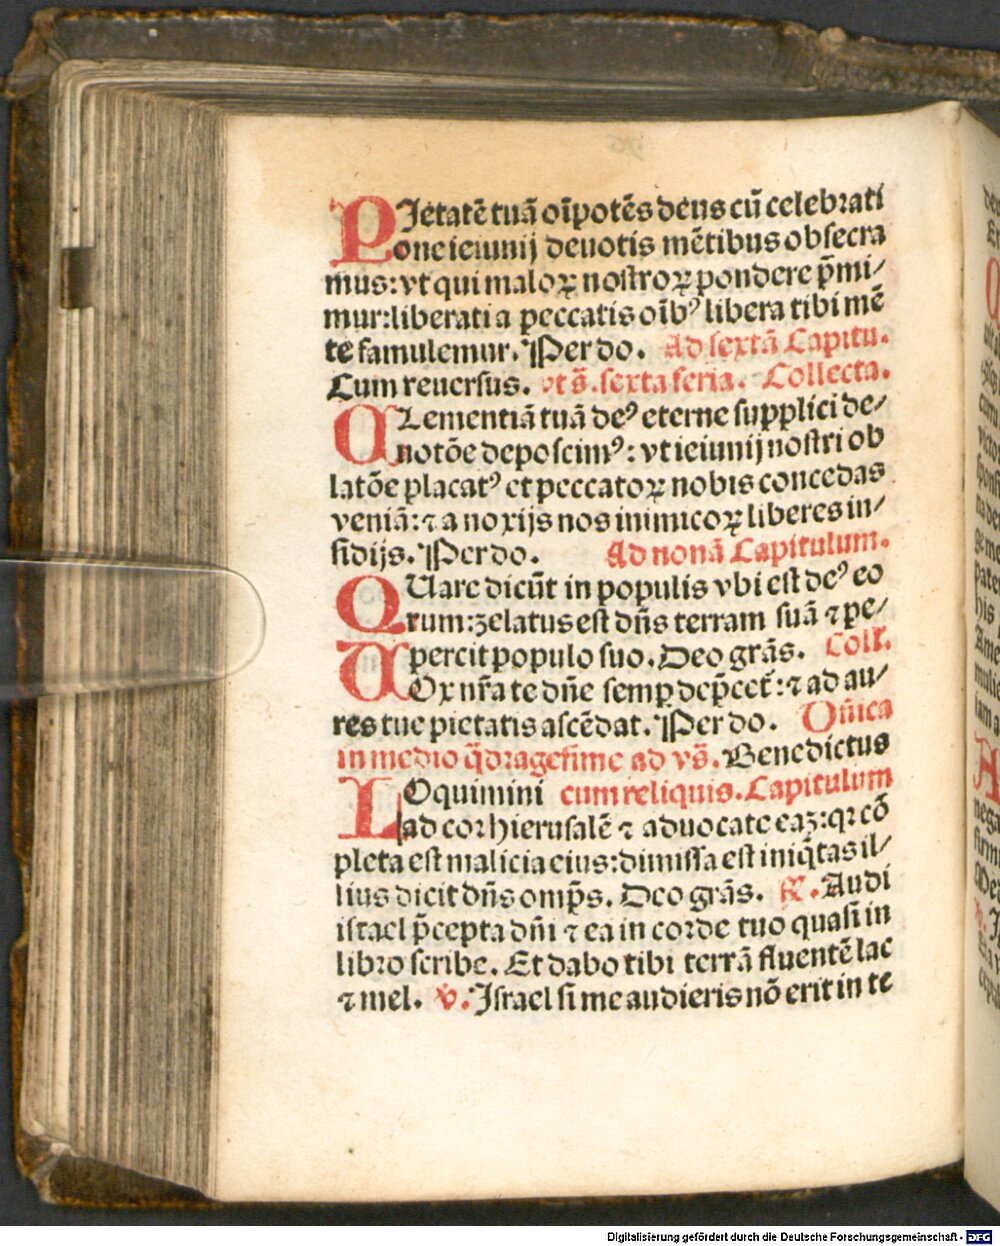 PIetatē tuā oīpotēs deus cū celebrati
one ieiunij deuotis mētibus obsecra
mus: vt qui maloꝝ nostroꝝ pondere p̄mi/
mur: liberati a peccatis oībꝰ libera tibi mē
te famulemur. Per do. Ad sextā Capitu.
Cum reuersus. vt s̄. sexta feria. Collecta.
CLementiā tuā deꝰ eterne supplici de/
uotōe deposcimꝰ: vt ieiunij nostri ob
latōe placatꝰ et peccatoꝝ nobis concedas
veniā: ⁊ a noxijs nos inimicoꝝ liberes in/
sidijs. Per do. Ad nonā Capitulum.
QUare dicūt in populis vbi est deꝰ eo
rum: zelatus est dn̄s terram suā ⁊ pe/
percit populo suo. Deo grās. Coll.
UOx nr̄a te dn̄e semp dep̄cet̄: ⁊ ad au/
res tue pietatis ascēdat. Per do. Dn̄ica
in medio q̄dragesime ad vs̄. Benedictus
LOquimini cum reliquis. Capitulum
ad cor hierusalē ⁊ aduocate eaʒ: qꝛ cō
pleta est malicia eius: dimissa est iniq̄tas il/
lius dicit dn̄s omp̄s. Deo grās. ℟. Audi
israel p̄cepta dn̄i ⁊ ea in corde tuo quasi in
libro scribe. Et dabo tibi terrā fluentē lac
⁊ mel. ℣. Israel si me audieris nō erit in te
Digitalisierung gefördert durch die Deutsche Forschungsgemeinschaft - DFG